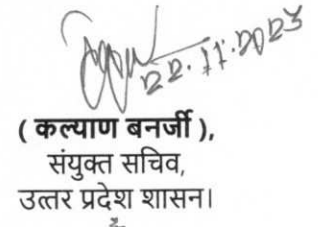 22.11.2023
( कल्याण बनर्जी ),
संयुक्त सचिव,
उत्तर प्रदेश शासन।